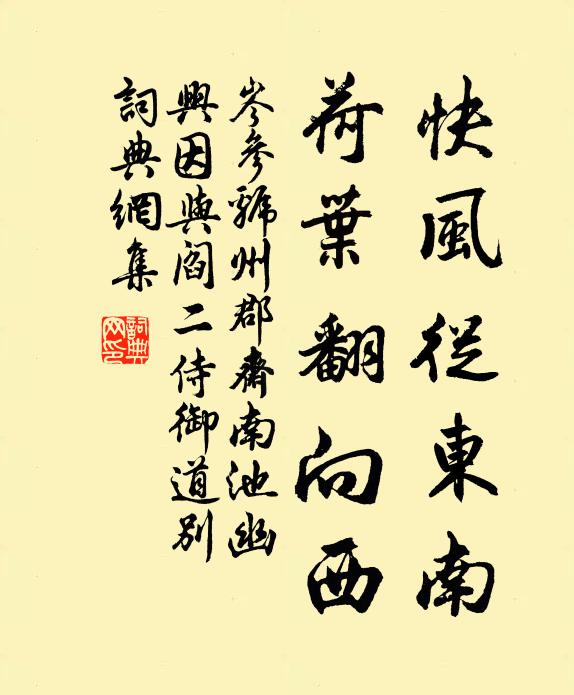 快風從東南
荷葉翻向西
岑參虢州郡齋南池幽
興因與閻二侍御道別
詞典網集
詞典網印